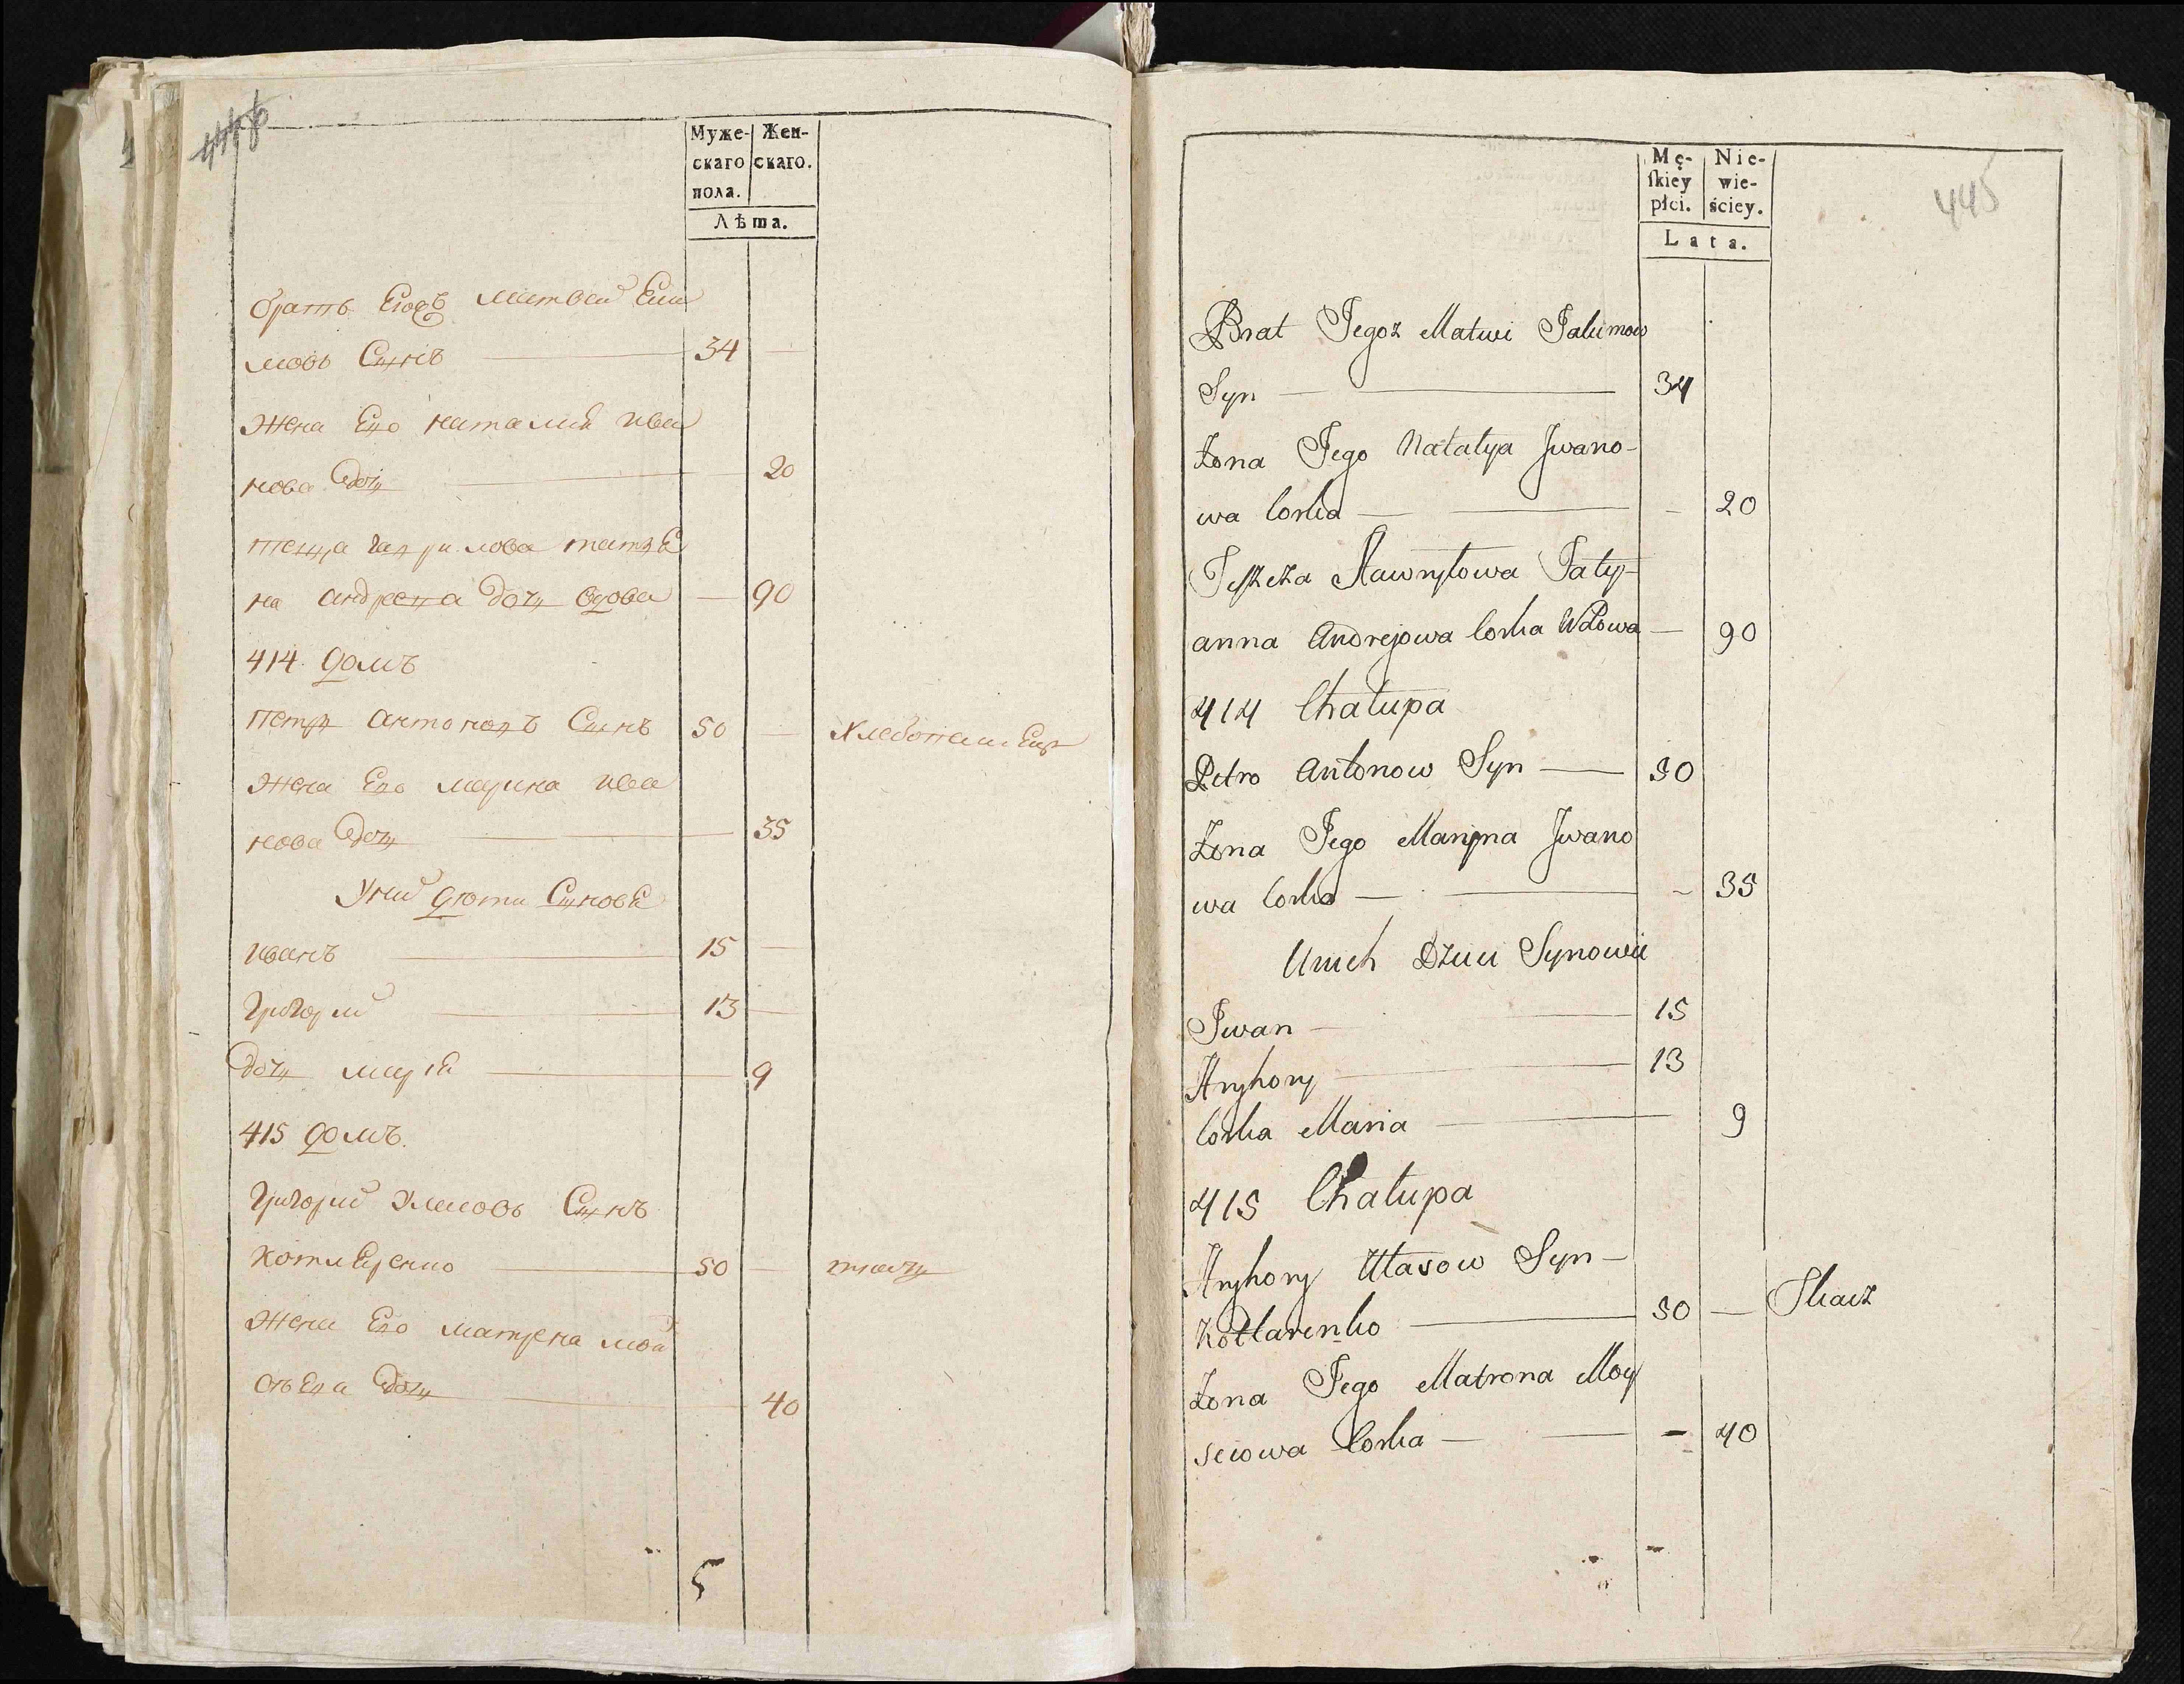 Муже-
скаго
пола.
Жен-
скаго.
Лѣта.
братъ Егожъ матвей Еки
мовъ Сынъ — 34 —
жена Его наталія ива
нова дочь — 20
теща гаврилова татья
на андреева дочь вдова — 90
414 домъ
петръ антоновъ Сынъ 50 — Хлебопашецъ
жена Его марина ива
нова дочь — 35
Унихъ дети Сыновья
иванъ — 15 —
григорий — 13 —
дочь марія — 9
415 домъ.
григорий уласовъ Сынъ
котляренко — 50 — ткачь
жена Его матрена мои
сѣева дочь — 40
5
Mę-
ſkiey
płci.
Nie-
wie-
ściey.
Lata.
445
Brat Jegoż Matwi Jakimow
Syn — 34
Żona Jego Natalya Jwano-
wa Corka — — 20
Teszcza Hawryłowa Taty-
anna Andrejowa Corka Wdowa — 90
414 Chałupa
Petro Antonow Syn — 50
Żona Jego Maryna Jwano
wa Corka — — 35
Unich Dzieci Synowie
Jwan — 15
Hryhory — 13
Corka Maria — 9
415 Chałupa
Hryhory Ułasow Syn —
Kotlarenko — 50 — Tkacz
Żona Jego Matrona Moy
seiowa Corka — — 40